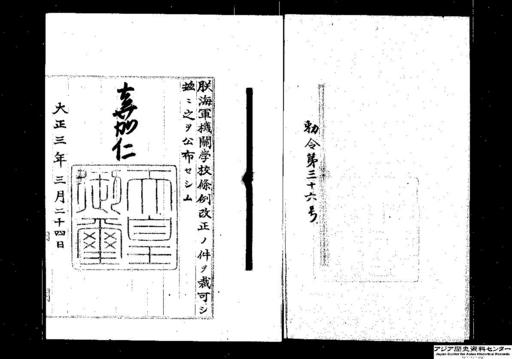 勅令第三十六号
朕海軍機關学校條例改正ノ件ヲ裁可シ
玆ニ之ヲ公布セシム
嘉仁
天皇御璽
大正三年三月二十四日
アジア歴史資料センター
Japan Center for Asian Historical Records